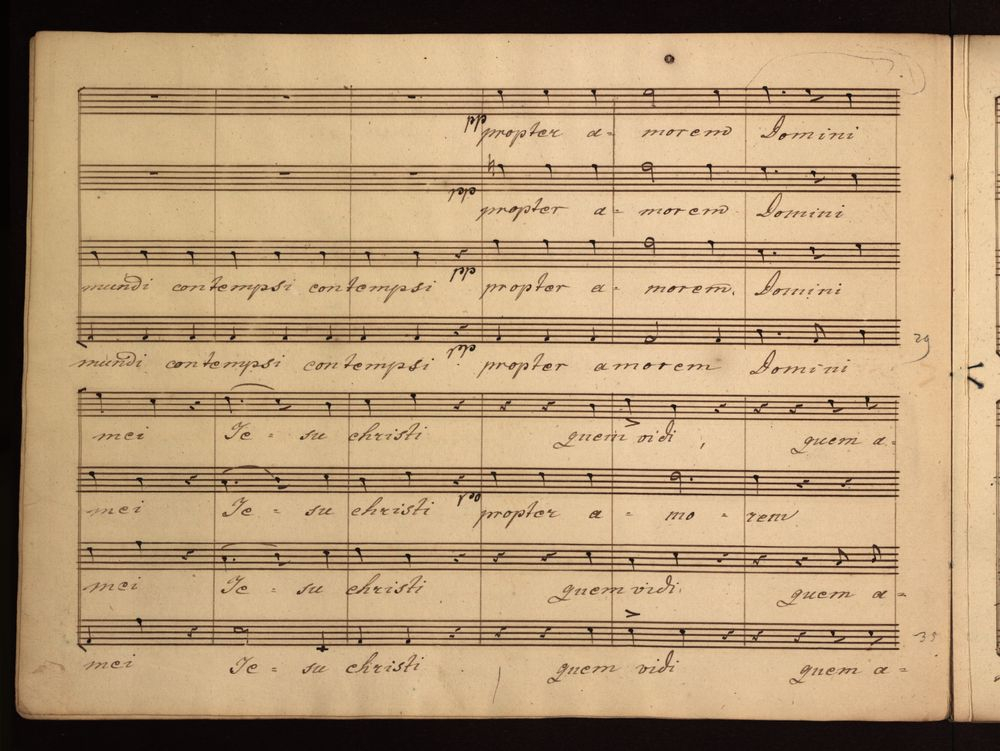 propter a- morem Domini
propter a- morem Domini
mundi contempsi contempsi propter a- morem. Domini
29
mundi contempsi contempsi propter amorem Domini
mei Ie- su christi quem vidi, quem a-
mei Ie- su christi propter a- mo- rem
mei Ie- su christi quem vidi. quem a-
35
mei Ie- su christi quem vidi quem a-